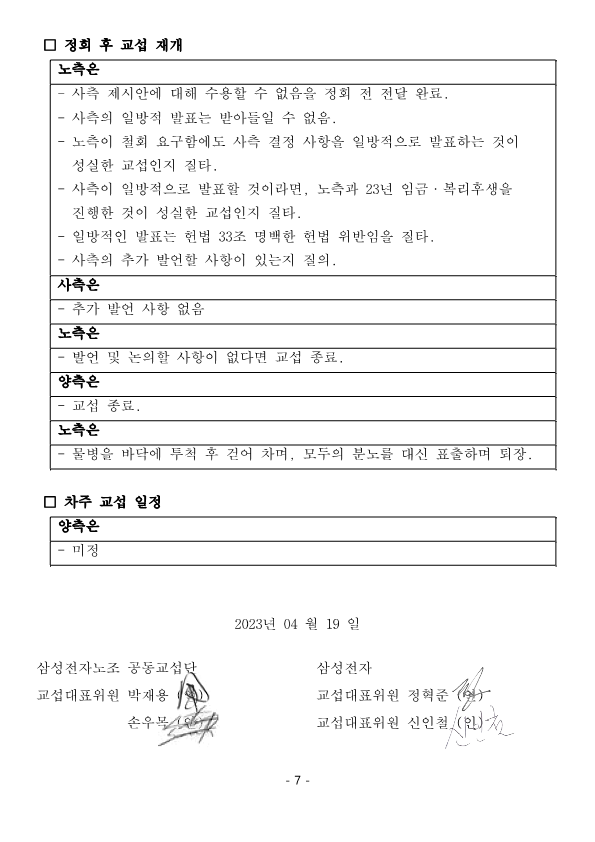 □ 정회 후 교섭 재개
노측은
- 사측 제시안에 대해 수용할 수 없음을 정회 전 전달 완료.
- 사측의 일방적 발표는 받아들일 수 없음.
- 노측이 철회 요구함에도 사측 결정 사항을 일방적으로 발표하는 것이
성실한 교섭인지 질타.
- 사측이 일방적으로 발표할 것이라면, 노측과 23년 임금·복리후생을
진행한 것이 성실한 교섭인지 질타.
- 일방적인 발표는 헌법 33조 명백한 헌법 위반임을 질타.
- 사측의 추가 발언할 사항이 있는지 질의.
사측은
- 추가 발언 사항 없음
노측은
- 발언 및 논의할 사항이 없다면 교섭 종료.
양측은
- 교섭 종료.
노측은
- 물병을 바닥에 투척 후 걷어 차며, 모두의 분노를 대신 표출하며 퇴장.
□ 차주 교섭 일정
양측은
- 미정
2023년 04 월 19 일
삼성전자노조 공동교섭단
교섭대표위원 박재용
손우목
삼성전자
교섭대표위원 정혁준
교섭대표위원 신인철 (인)
- 7 -